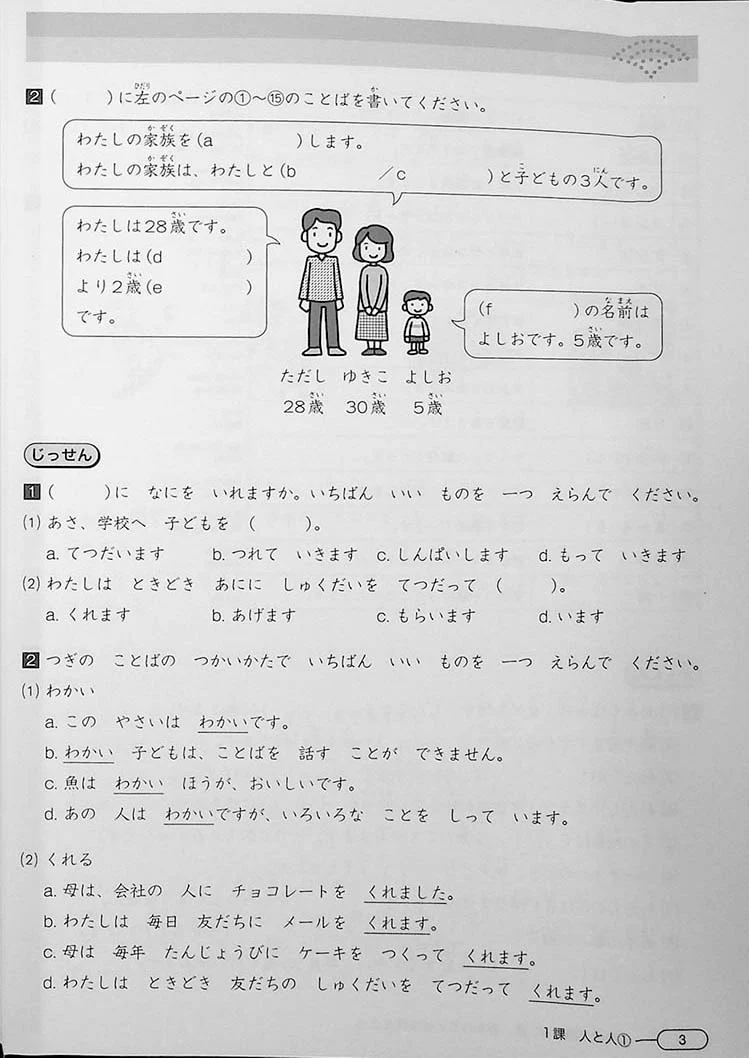 2 (　　　)に左のページの①～⑮のことばを書いてください。
わたしの家族を(a　　　　)します。
わたしの家族は、わたしと(b　　　　/c　　　　)と子どもの3人です。
わたしは28歳です。
わたしは(d　　　　)
より2歳(e　　　　)
です。
(f　　　　)の名前は
よしおです。5歳です。
ただし　ゆきこ　よしお
28歳　30歳　5歳
じっせん
1 (　　　)に　なにを　いれますか。いちばん　いい　ものを　一つ　えらんで　ください。
(1) あさ、学校へ　子どもを　(　　　)。
a. てつだいます　b. つれて　いきます　c. しんぱいします　d. もって　いきます
(2) わたしは　ときどき　あにに　しゅくだいを　てつだって　(　　　)。
a. くれます　b. あげます　c. もらいます　d. います
2 つぎの　ことばの　つかいかたで　いちばん　いい　ものを　一つ　えらんで　ください。
(1) わかい
a. この　やさいは　わかいです。
b. わかい　子どもは、ことばを　話す　ことが　できません。
c. 魚は　わかい　ほうが、おいしいです。
d. あの　人は　わかいですが、いろいろな　ことを　しって　います。
(2) くれる
a. 母は、会社の　人に　チョコレートを　くれました。
b. わたしは　毎日　友だちに　メールを　くれます。
c. 母は　毎年　たんじょうびに　ケーキを　つくって　くれます。
d. わたしは　ときどき　友だちの　しゅくだいを　てつだって　くれます。
1課　人と人①　3